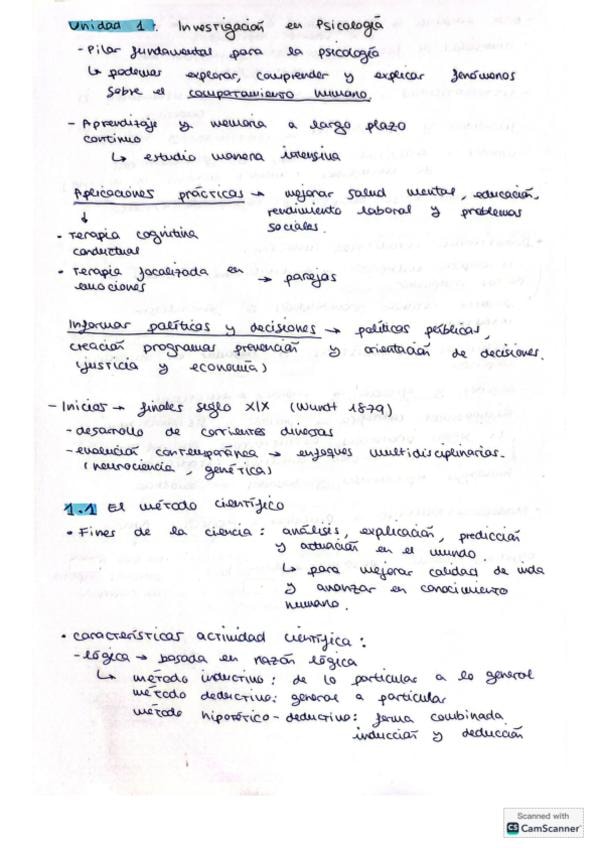 Unidad 1. Investigación en Psicología
- Pilar fundamental para la psicología
↳ podemos explorar, comprender y explicar fenómenos
sobre el comportamiento humano.
- Aprendizaje y memoria a largo plazo
continuo
↳ estudio manera intensiva
Aplicaciones prácticas → mejorar salud mental, educación,
rendimiento laboral y problemas
sociales.
↓
• Terapia cognitiva
conductual
• Terapia focalizada en → parejas
emociones
Informar políticas y decisiones → políticas públicas,
creación programas prevención y orientación de decisiones.
(justicia y economía)
- Inicios → finales siglo XIX (Wundt 1879)
- desarrollo de corrientes diversas
- evolución contemporánea → enfoques multidisciplinarios.
(neurociencia, genética)
1.1 El método científico
• Fines de la ciencia: análisis, explicación, predicción
y actuación en el mundo.
↳ para mejorar calidad de vida
y avanzar en conocimiento
humano.
• características actividad científica:
- lógica → basada en razón lógica
↳ método inductivo: de lo particular a lo general
método deductivo: general a particular
método hipotético-deductivo: forma combinada
inducción y deducción
Scanned with
CS CamScanner